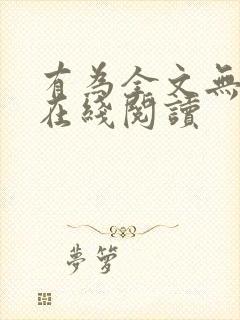 有為全文無
在綫閱讀
夢籮